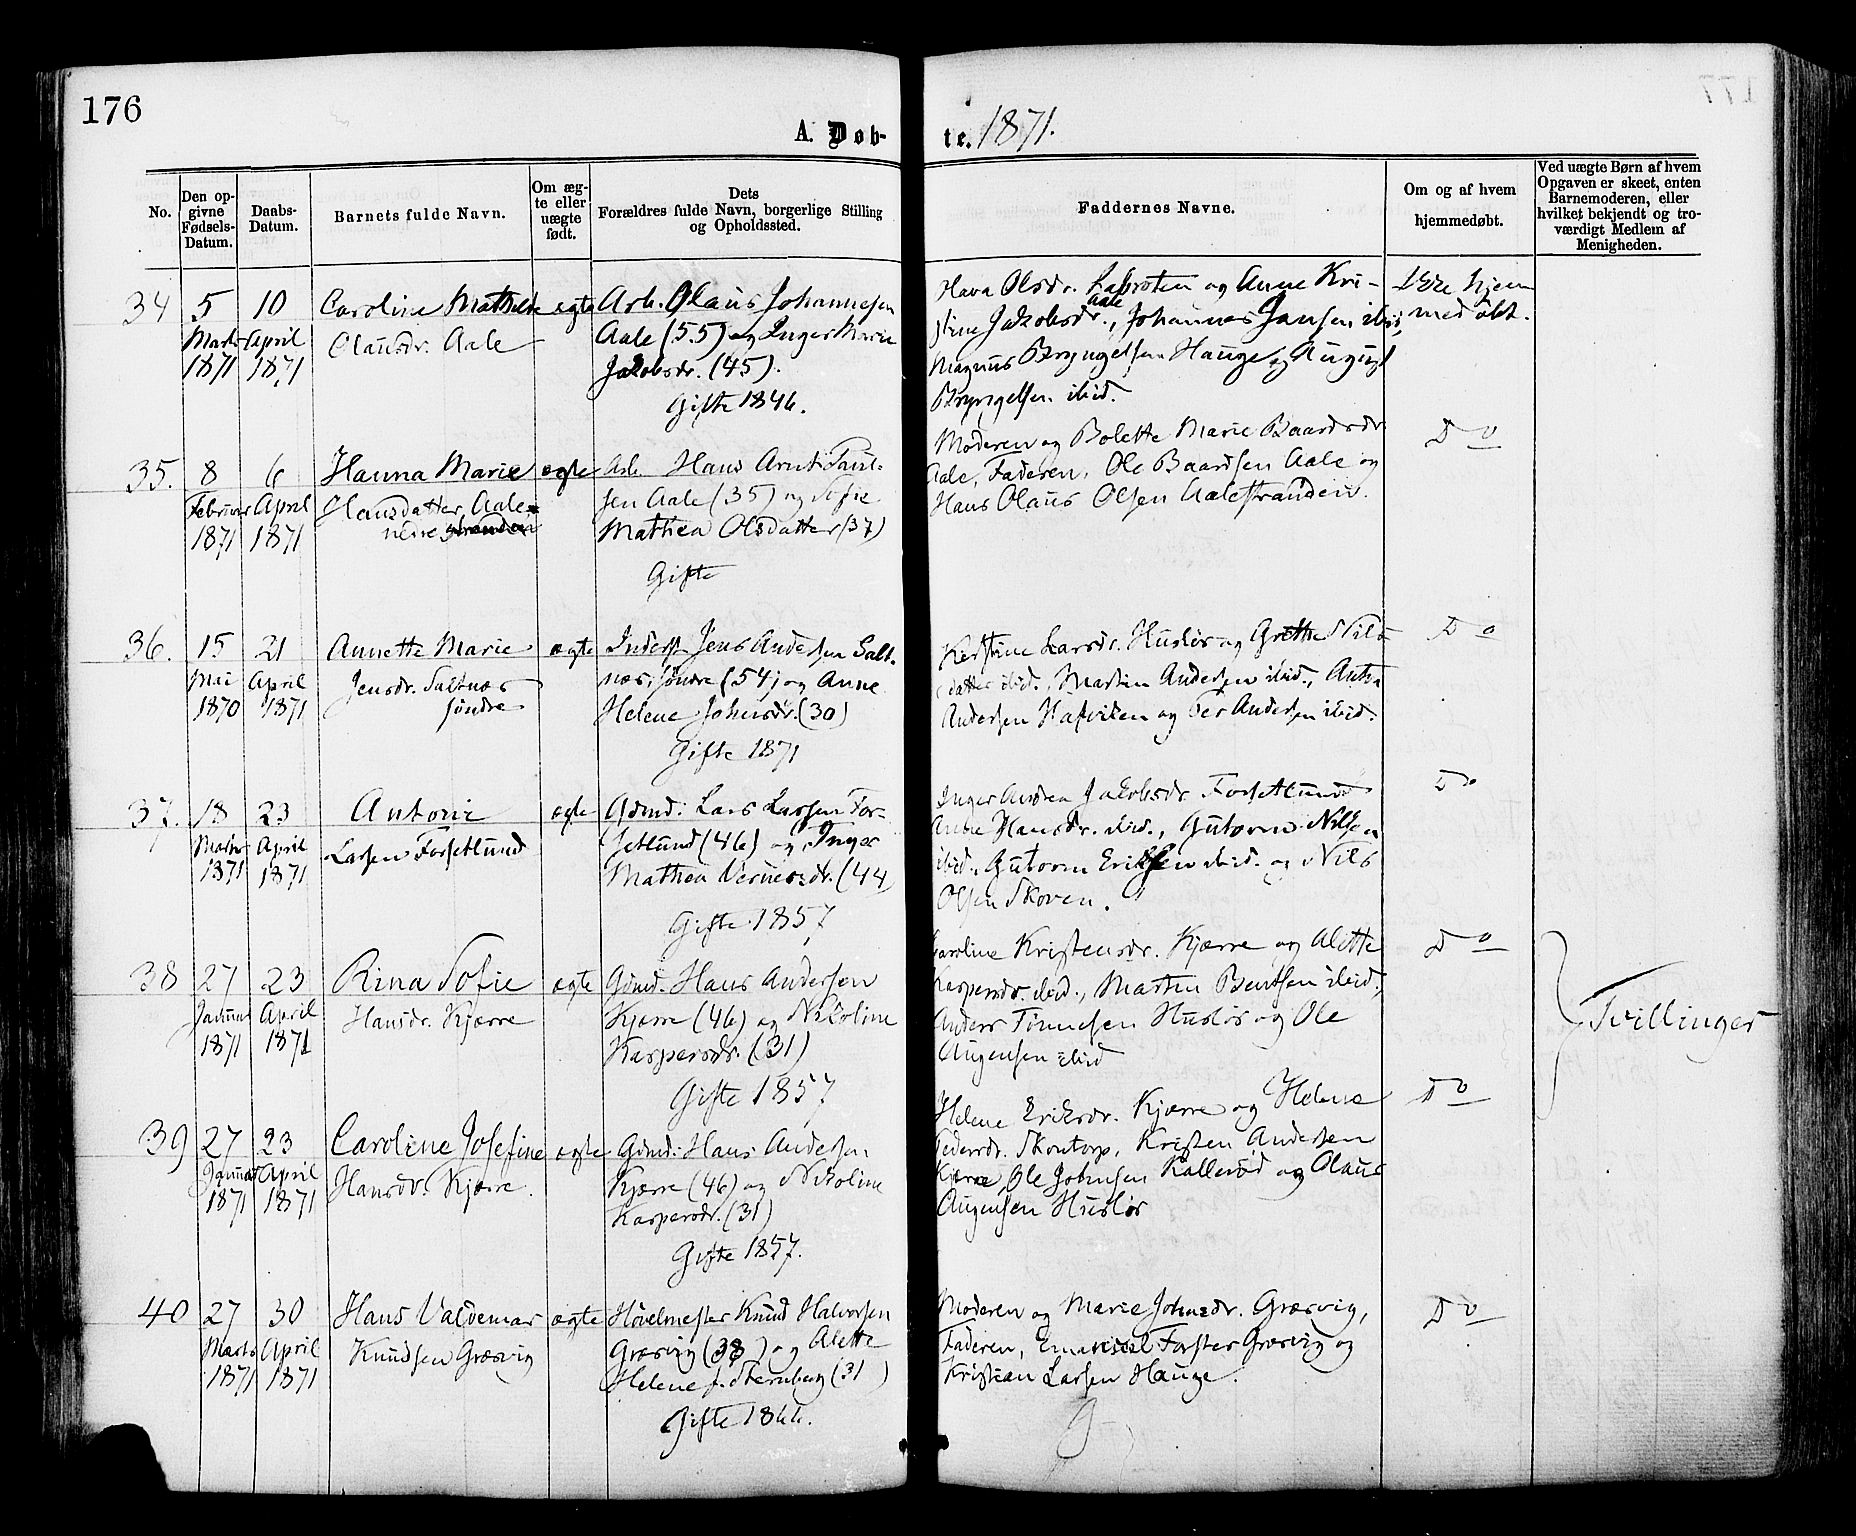 176
A. Døb-
te. 1871.
No.
Den op-
givne
Fødsels-
Datum.
Daabs-
Datum.
Barnets fulde Navn.
Om æg-
te eller
uægte
født.
Dets
Forældres fulde Navn, borgerlige Stilling
og Opholdssted.
Faddernes Navne.
Om og af hvem
hjemmedøbt.
Ved uægte Børn af hvem
Opgaven er skeet, enten
Barnemoderen, eller
hvilket bekjendt og tro-
værdigt Medlem af
Menigheden.
34 5 10 Caroline Mathilde ægte Arb. Olaus Johannesen
Marts April Olausdr. Aale Aale (55) og Inger Marie
1871 1871 Jakobsdr. (45).
Gifte 1846.
Olsdr. og Anne Kri-
stine Jakobsdr. Aale, Johannes Jansen ibid,
Magnus Bryngelsen Hauge og August
Bryngelsen ibid.
Ikke hjem
med øbt.
35. 8 6 Hanna Marie ægte Arb. Hans Arnt Paul-
Februar April Hansdatter Aale sen Aale (35) og Sofie
1871 1871 nedre stranden Mathea Olsdatter (37)
Gifte
Moderen og Bolette Marie Baardsdr.
Aale, Faderen, Ole Baardsen Aale og
Hans Olaus Olsen Aalestranden.
Do
36. 15 21 Annette Marie ægte Inderst Jens Andersen Salt-
Mai April Jensdr. Saltnes nes, søndre (54) og Anne
1870 1871 søndre Helene Johnsdr. (30)
Gifte 1871
Kirstine Larsdr. Husløs og Grethe Nils
datter ibid., Martin Andersen ibid.,
Andersen Hafviken og Per Andersen ibid.
Do
37. 18 23 Antoni ægte Gdmd: Lars Larsen For-
Marts April Larsen Forsetlund setlund (46) og Inger
1871 1871 Mathea Vernersdr. (44)
Gifte 1857
Inger Andrea Jakobsdr. Forsetlund
Anne Hansdr. ibid., Gutorm Nilsen
ibid., Gutorm Eriksen ibid. og Nils
Olsen Skoven.
Do
38 27 23 Rina Sofie ægte Gdmd. Hans Andersen
Januar April Hansdr. Kjærre Kjærre (46) og Nikoline
1871 1871 Kaspersdr. (31)
Gifte 1857
Caroline Kristensdr. Kjærre og Alette
Kaspersdr. ibid., Martin Bentsen ibid.,
Anders Tønnesen Husløs og Ole
Augensen ibid
Do
Tvillinger
39 27 23 Caroline Josefine ægte Gdmd: Hans Andersen
Januar April Hansdr. Kjærre. Kjærre (46) og Nikoline
1871 1871 Kaspersdr. (31)
Gifte 1857.
Helene Eriksdr. Kjærre og Helene
Pedersdr. Skontorp, Kristen Andersen
Kjærre, Ole Johnsen Kallerød og Olaus
Augensen Husløs
Do
40 27 30 Hans Valdemar ægte Høvelmester Knud Halvorsen
Marts April Knudsen Græsvig Græsvig (38) og Alette
1871 1871 Helene f. Sternberg (31)
Gifte 1866.
Moderen og Marie Johnsdr. Græsvig,
Faderen, Emanuel Forster Græsvig og
Kristian Larsen Hauge.
Do